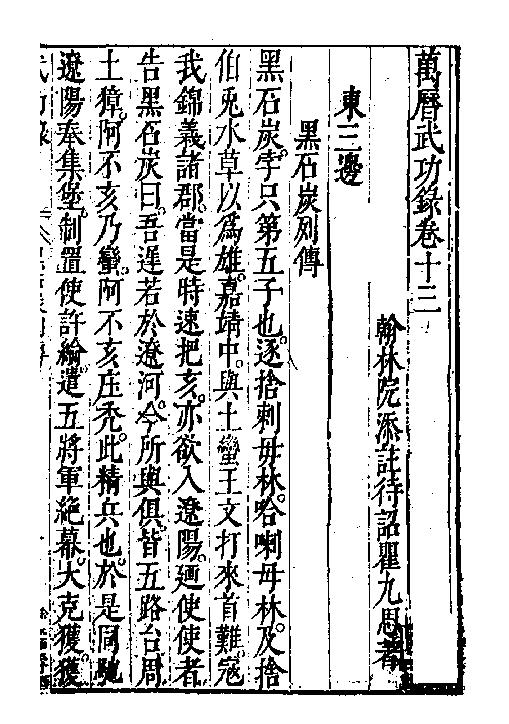 萬曆武功錄卷十三
翰林院添註待詔瞿九思著
東三邊
黑石炭列傳
黑石炭。孛只第五子也。逐捨剌毋林。哈喇毋林。及捨
伯兎水草以爲雄。嘉靖中。與土蠻王文打來首難。寇
我錦義諸郡。當是時。速把亥。亦欲入遼陽。廼使使者
告黑石炭曰。吾遲若於遼河。今所與俱。皆五路台周
土獐。阿不亥乃蠻。阿不亥庄禿。此精兵也。於是同馳
遼陽奉集堡。制置使許綸遣五將軍絕幕。大克獲。獲